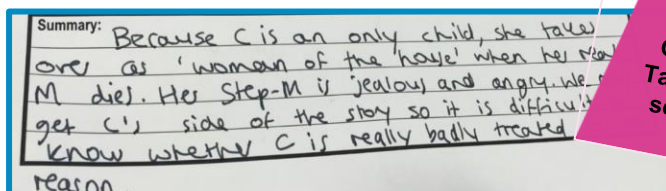 Summary: Because C is an only child, she takes
over as 'woman of the house' when her real
M dies. Her Step-M is jealous and angry. We
get C's side of the story so it is difficult
know whether C is really badly treated
reason
Ta